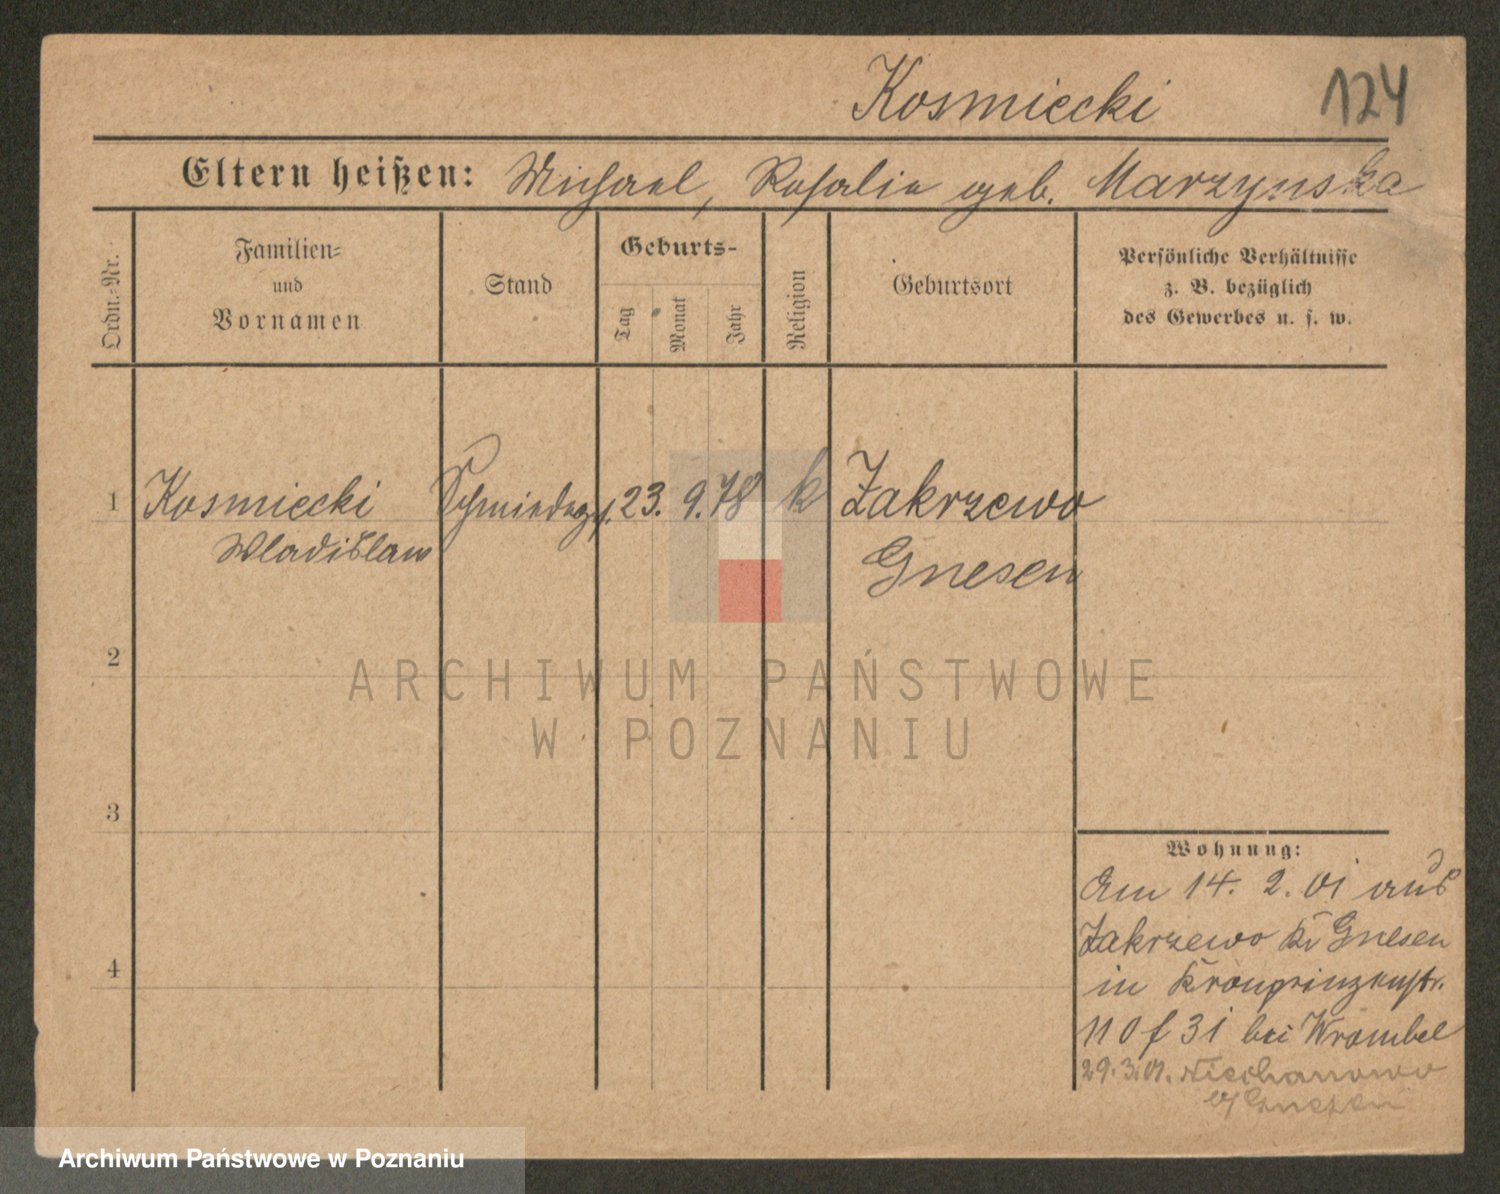 Kosmiecki 124
Eltern heißen: Michael, Rosalie geb. Marzynska
Ordn.-Nr.
Familien-
und
Vornamen
Stand
Geburts-
Tag
Monat
Jahr
Religion
Geburtsort
Persönliche Verhältnisse
z. B. bezüglich
des Gewerbes u. s. w.
1 Kosmiecki Schmiedeg. 23. 9. 78 k Zakrzewo
Wladislaw Gnesen
2
3
4
Wohnung:
Am 14. 2. 01 aus
Zakrzewo Kr Gnesen
in Kronprinzenstr.
110 f 31 bei Wrombel
29.3.01. Niechanowo
b/ Gnesen
ARCHIWUM PAŃSTWOWE
W POZNANIU
Archiwum Państwowe w Poznaniu